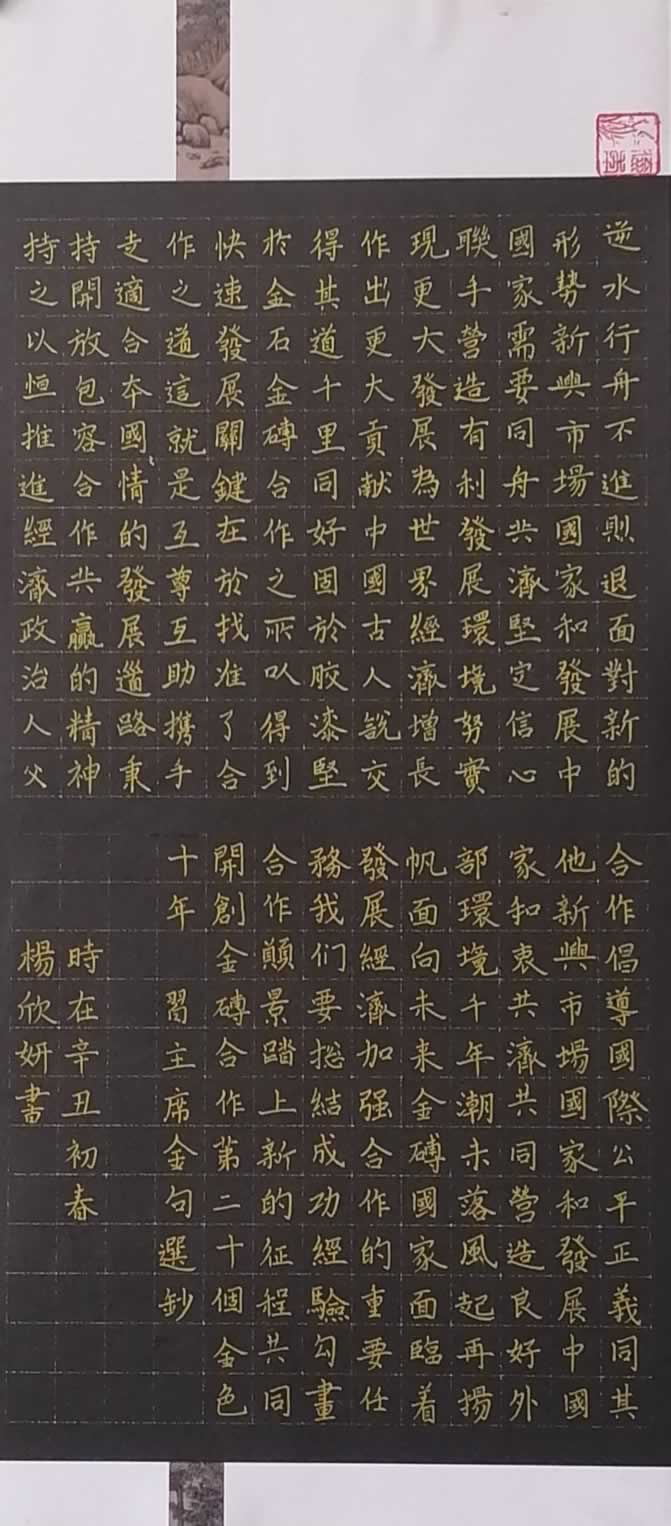 逆水行舟不進則退面對新的
形勢新興市場國家和發展中
國家需要同舟共濟堅定信心
聯手營造有利發展環境努實
現更大發展為世界經濟增長
作出更大貢献中國古人說交
得其道千里同好固於胶漆堅
於金石金磚合作之所以得到
快速發展關鍵在於找准了合
作之道這就是互尊互助携手
走適合本國情的發展道路秉
持開放包容合作共贏的精神
持之以恒推進經濟政治人父
合作倡導國際公平正義同其
他新興市場國家和發展中國
家和衷共濟共同營造良好外
部環境千年潮未落風起再揚
帆面向未来金磚國家面臨着
發展經濟加强合作的重要任
務我们要总結成功經驗勾畫
合作願景踏上新的征程共同
開創金磚合作第二十個金色
十年 習主席金句選鈔
時在辛丑初春
楊欣妍書